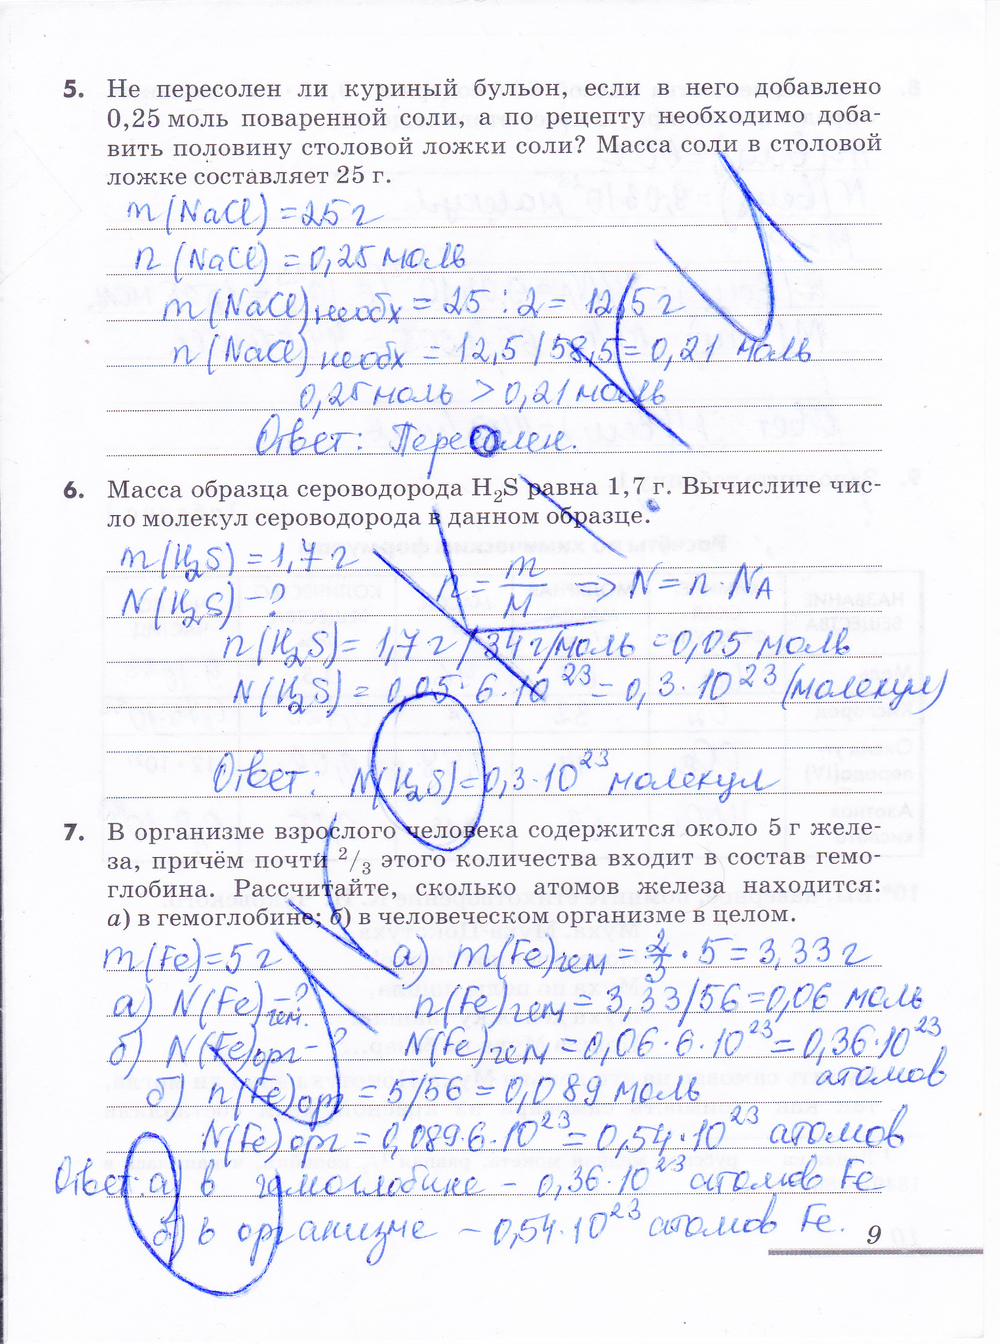 5. Не пересолен ли куриный бульон, если в него добавлено
0,25 моль поваренной соли, а по рецепту необходимо доба-
вить половину столовой ложки соли? Масса соли в столовой
ложке составляет 25 г.
m(NaCl) = 25 г
n(NaCl) = 0,25 моль
m(NaCl)необх = 25 : 2 = 12,5 г
n(NaCl)необх = 12,5/58,5 = 0,21 моль
0,25 моль > 0,21 моль
Ответ: Пересолен.
6. Масса образца сероводорода H₂S равна 1,7 г. Вычислите чис-
ло молекул сероводорода в данном образце.
m(H₂S) = 1,7 г
N(H₂S) - ? n = m/M => N = n · NA
n(H₂S) = 1,7 г/34 г/моль = 0,05 моль
N(H₂S) = 0,05 · 6 · 10²³ = 0,3 · 10²³ (молекул)
Ответ: N(H₂S) = 0,3 · 10²³ молекул
7. В организме взрослого человека содержится около 5 г желе-
за, причём почти 2/3 этого количества входит в состав гемо-
глобина. Рассчитайте, сколько атомов железа находится:
а) в гемоглобине; б) в человеческом организме в целом.
m(Fe) = 5 г а) m(Fe)гем = 2/3 · 5 = 3,33 г
а) N(Fe)гем. - ? n(Fe)гем = 3,33/56 = 0,06 моль
б) N(Fe)орг - ? N(Fe)гем = 0,06 · 6 · 10²³ = 0,36 · 10²³
атомов
б) n(Fe)орг = 5/56 = 0,089 моль
N(Fe)орг = 0,089 · 6 · 10²³ = 0,54 · 10²³ атомов
Ответ: а) в гемоглобине - 0,36 · 10²³ атомов Fe
б) в организме - 0,54 · 10²³ атомов Fe.
9